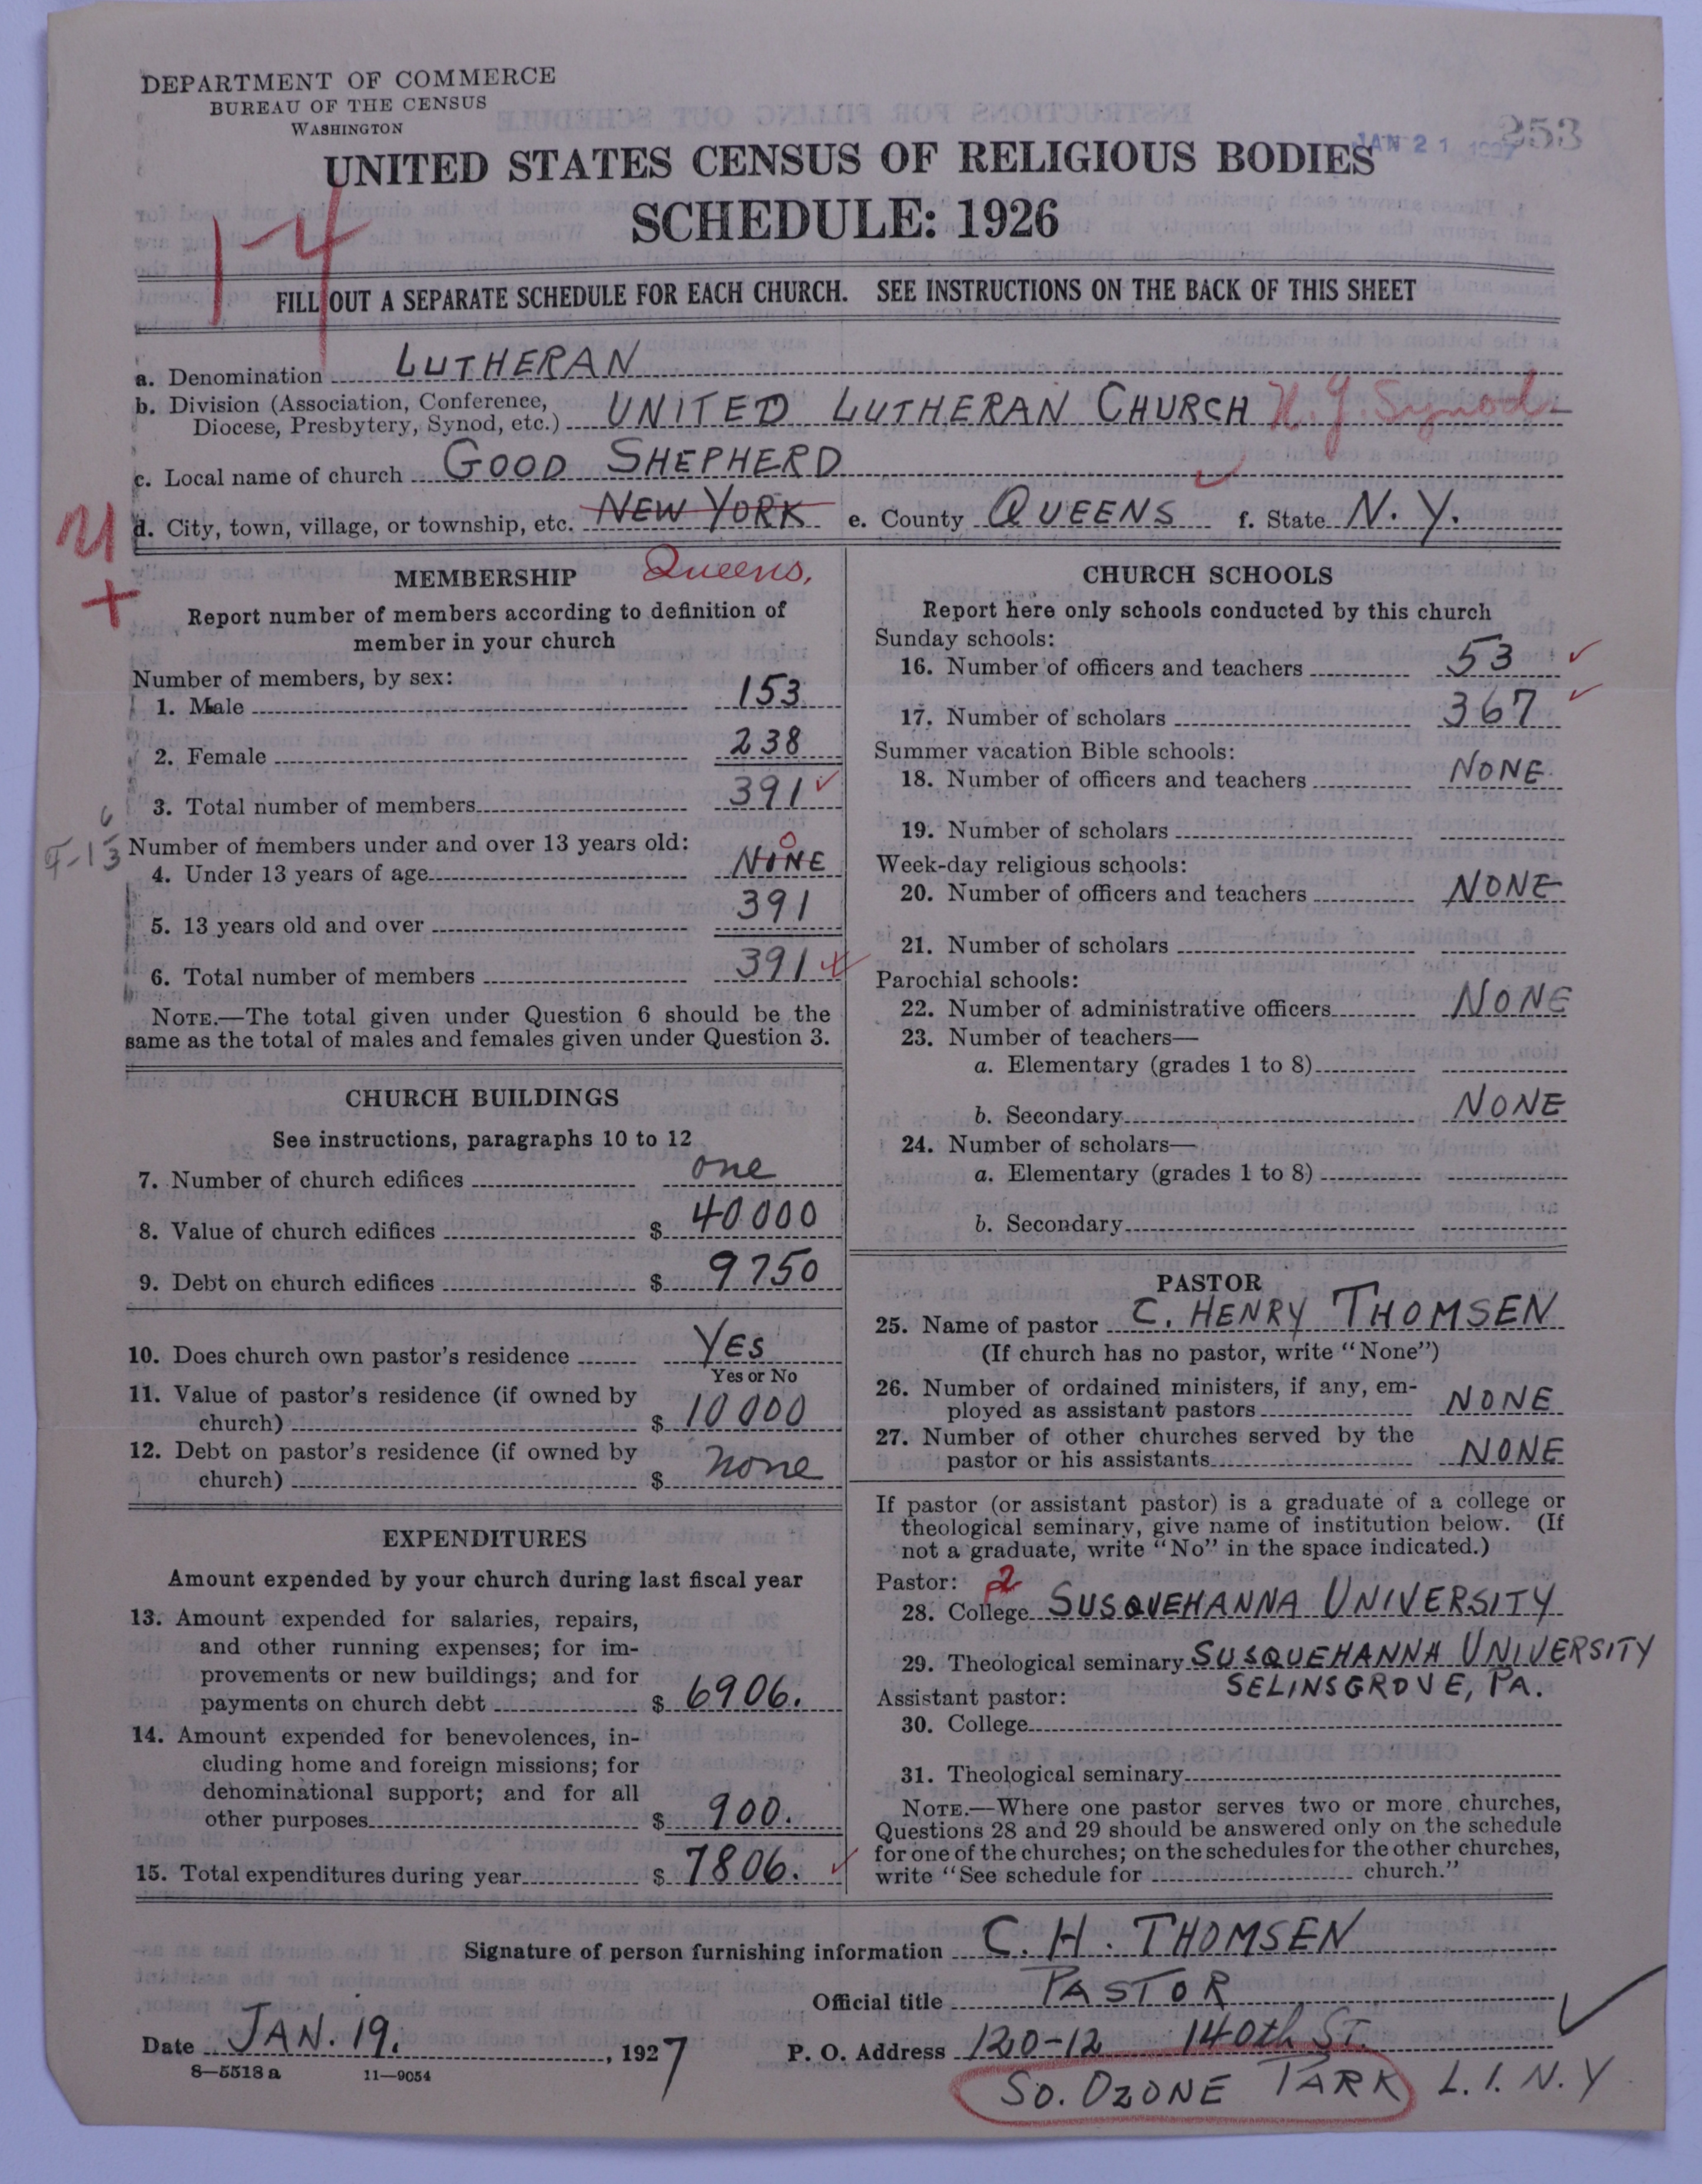 DEPARTMENT OF COMMERCE
BUREAU OF THE CENSUS
WASHINGTON
JAN 21 1927
253
UNITED STATES CENSUS OF RELIGIOUS BODIES
SCHEDULE: 1926
1-4
FILL OUT A SEPARATE SCHEDULE FOR EACH CHURCH. SEE INSTRUCTIONS ON THE BACK OF THIS SHEET
a. Denomination LUTHERAN
b. Division (Association, Conference, Diocese, Presbytery, Synod, etc.) UNITED LUTHERAN CHURCH N.Y. Synod
c. Local name of church GOOD SHEPHERD
d. City, town, village, or township, etc. NEW YORK e. County QUEENS f. State N. Y.
Queens.
MEMBERSHIP
Report number of members according to definition of
member in your church
Number of members, by sex:
1. Male 153
2. Female 238
3. Total number of members 391
Number of members under and over 13 years old:
4. Under 13 years of age NONE 0
5. 13 years old and over 391
6. Total number of members 391
NOTE.—The total given under Question 6 should be the
same as the total of males and females given under Question 3.
CHURCH BUILDINGS
See instructions, paragraphs 10 to 12
7. Number of church edifices one
8. Value of church edifices $ 40000
9. Debt on church edifices $ 9750
10. Does church own pastor's residence YES
Yes or No
11. Value of pastor's residence (if owned by
church) $ 10000
12. Debt on pastor's residence (if owned by
church) $ none
EXPENDITURES
Amount expended by your church during last fiscal year
13. Amount expended for salaries, repairs,
and other running expenses; for im-
provements or new buildings; and for
payments on church debt $ 6906.
14. Amount expended for benevolences, in-
cluding home and foreign missions; for
denominational support; and for all
other purposes $ 900.
15. Total expenditures during year $ 7806.
CHURCH SCHOOLS
Report here only schools conducted by this church
Sunday schools:
16. Number of officers and teachers 53
17. Number of scholars 367
Summer vacation Bible schools:
18. Number of officers and teachers NONE
19. Number of scholars
Week-day religious schools:
20. Number of officers and teachers NONE
21. Number of scholars
Parochial schools:
22. Number of administrative officers NONE
23. Number of teachers—
a. Elementary (grades 1 to 8)
b. Secondary NONE
24. Number of scholars—
a. Elementary (grades 1 to 8)
b. Secondary
PASTOR
25. Name of pastor C. HENRY THOMSEN
(If church has no pastor, write "None")
26. Number of ordained ministers, if any, em-
ployed as assistant pastors NONE
27. Number of other churches served by the
pastor or his assistants NONE
If pastor (or assistant pastor) is a graduate of a college or
theological seminary, give name of institution below. (If
not a graduate, write "No" in the space indicated.)
Pastor: 2
28. College SUSQUEHANNA UNIVERSITY
29. Theological seminary SUSQUEHANNA UNIVERSITY
SELINSGROVE, PA.
Assistant pastor:
30. College
31. Theological seminary
NOTE.—Where one pastor serves two or more churches,
Questions 28 and 29 should be answered only on the schedule
for one of the churches; on the schedules for the other churches,
write "See schedule for church."
Signature of person furnishing information C. H. THOMSEN
Official title PASTOR
Date JAN. 19. , 1927 P. O. Address 120-12 140th ST.
SO. OZONE PARK L. I. N. Y
8—5518 a 11—9054